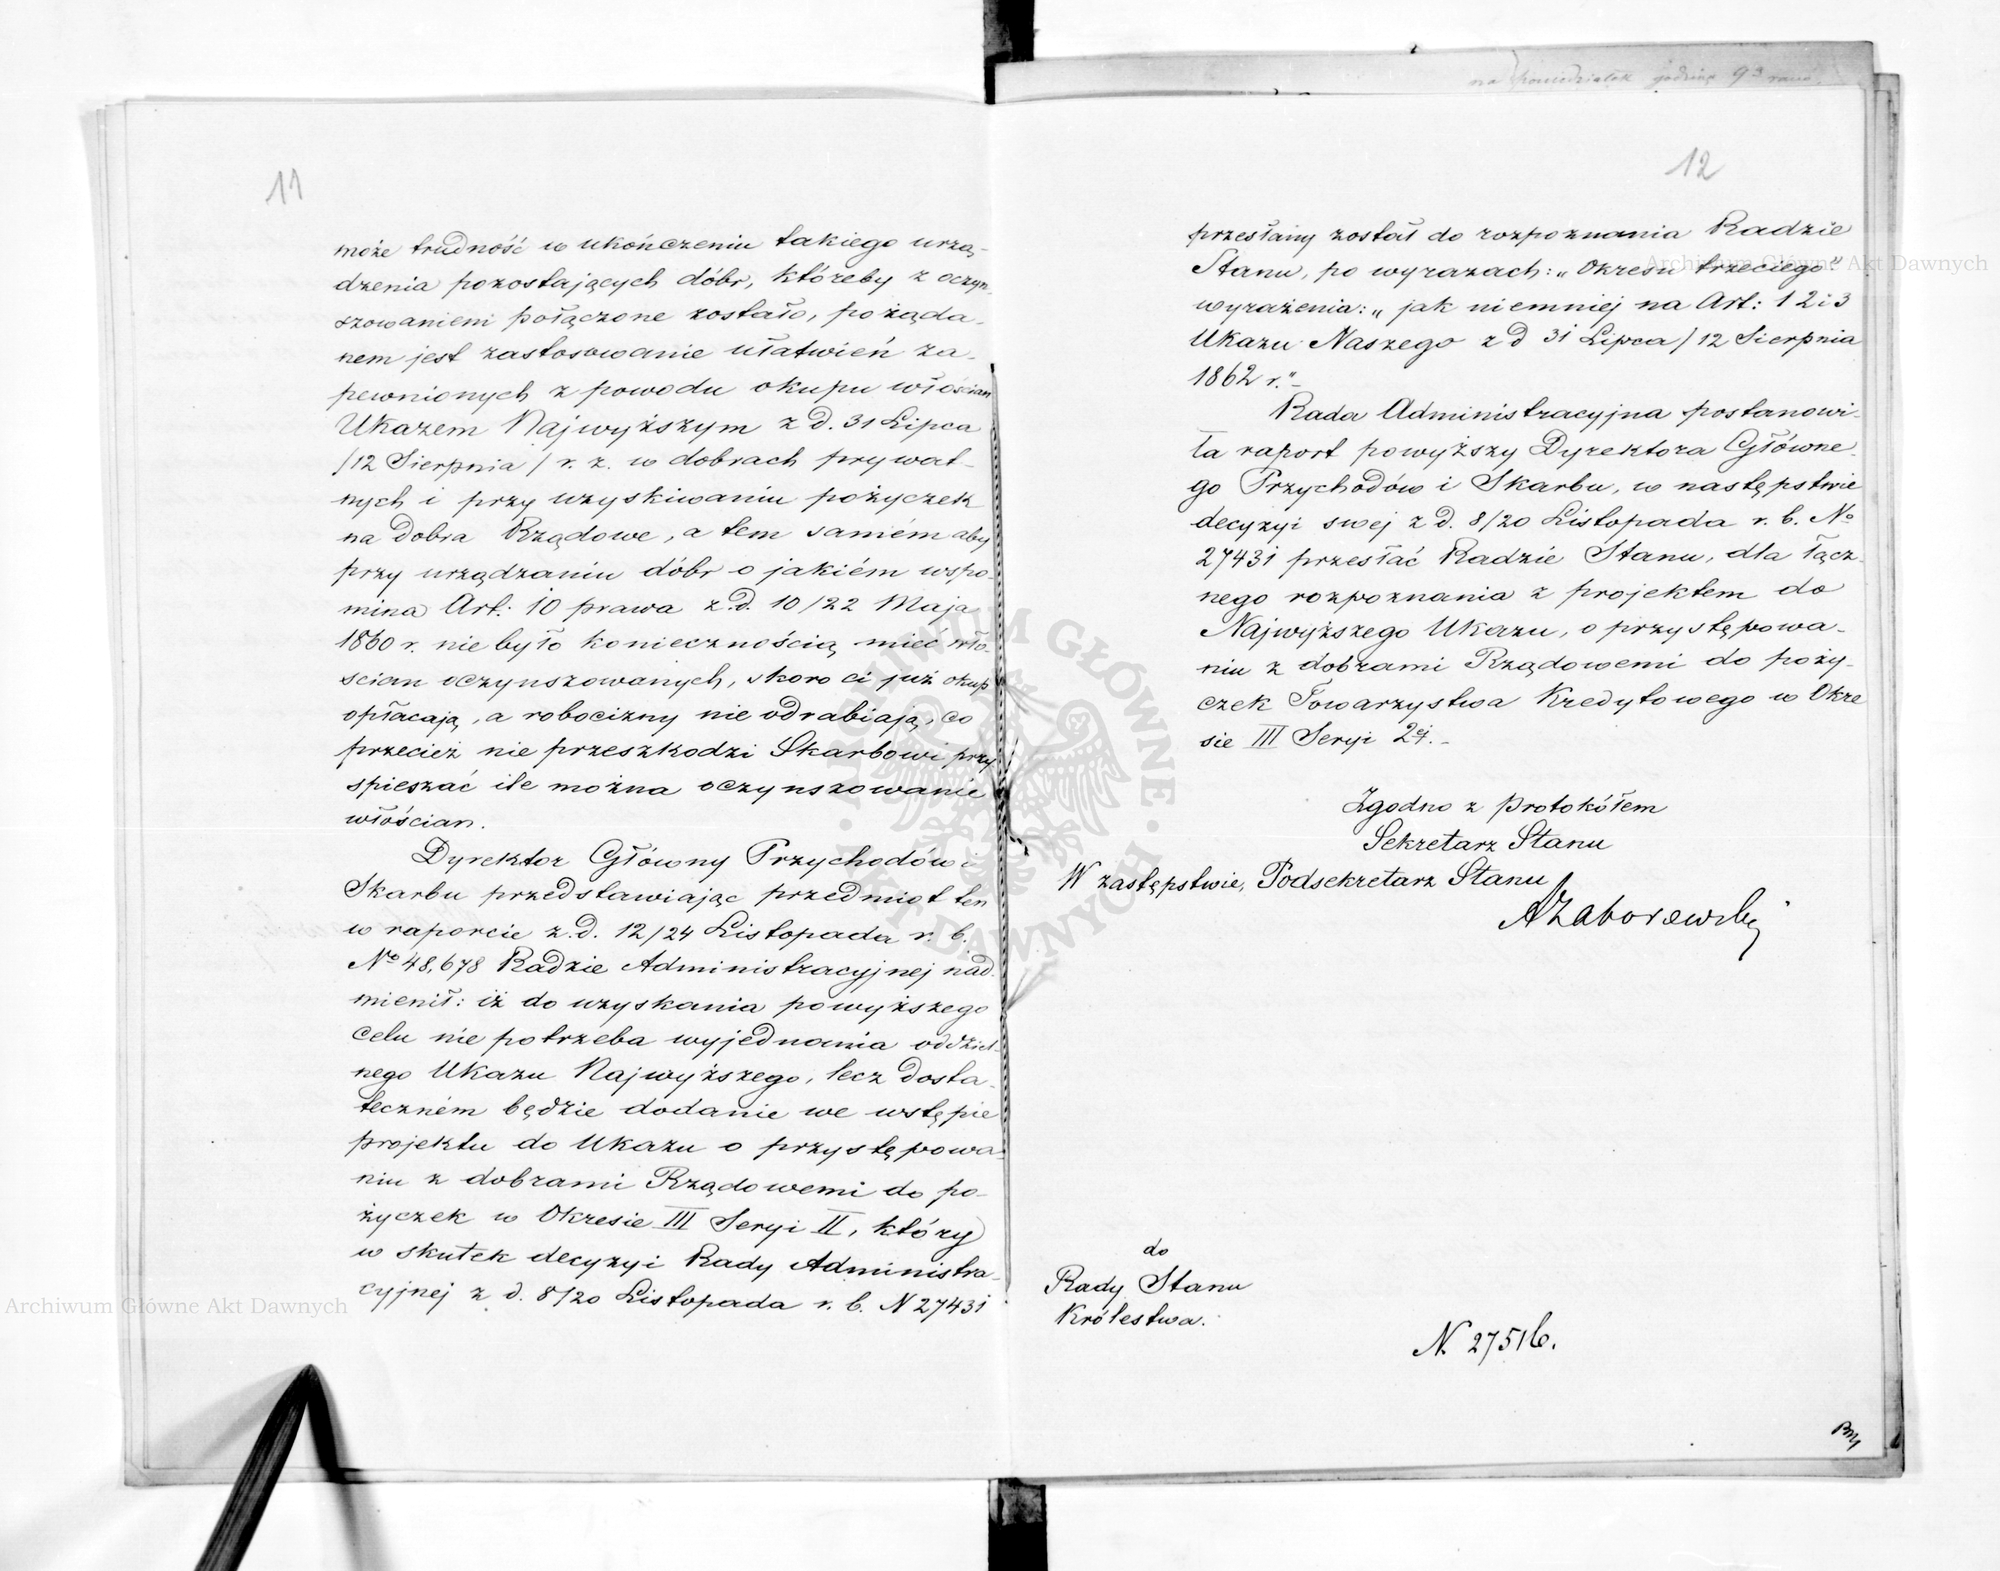 11
może trudność w ukończeniu takiego urzą-
dzenia pozostających dóbr, któreby z oczyn-
szowaniem połączone zostało, pożąda-
nem jest zastosowanie ułatwień za-
pewnionych z powodu okupu włościan
Ukazem Najwyższym z d. 31 Lipca
/12 Sierpnia/ r. z. w dobrach prywat-
nych i przy uzyskiwaniu pożyczek
na Dobra Rządowe, a tem samém aby
przy urządzaniu dóbr o jakiém wspo-
mina Art: 10 prawa z d. 10/22 Maja
1860 r. nie było koniecznością mieć wło-
ścian oczynszowanych, skoro ci już okup
opłacają, a robocizny nie odrabiają, co
przecież nie przeszkodzi Skarbowi przy-
spieszać ile można oczynszowanie
włóścian.
Dyrektor Główny Przychodów i
Skarbu przedstawiając przedmiot ten
w raporcie z.d. 12/24 Listopada r. b.
No 48,678 Radzie Administracyjnej nad-
mienił: iż do uzyskania powyższego
celu nie potrzeba wyjednania oddziel-
nego Ukazu Najwyższego, lecz dosta-
teczném będzie dodanie we wstępie
projektu do Ukazu o przystępowa-
niu z dobrami Rządowemi do po-
życzek w Okresie III Seryi II, który
w skutek decyzyi Rady Administra-
cyjnej z d. 8/20 Listopada r. b. N 27431
na poniedziałek godzinę 9 rano
12
przesłany został do rozpoznania Radzie
Stanu, po wyrazach: „Okresu trzeciego"
wyrażenia: „jak niemniej na Art: 1 2 i 3
Ukazu Naszego z d 31 Lipca/12 Sierpnia
1862 r."-
Rada Administracyjna postanowi-
ła raport powyższy Dyrektora Główne-
go Przychodów i Skarbu, w następstwie
decyzyi swej z d. 8/20 Listopada r. b. No
27431 przesłać Radzie Stanu, dla łącz-
nego rozpoznania z projektem do
Najwyższego Ukazu, o przystępowa-
niu z dobrami Rządowemi do poży-
czek Towarzystwa Kredytowego w Okre
sie III Seryi 2éj.-
Zgodno z Protokółem
Sekretarz Stanu
W zastępstwie, Podsekretarz Stanu
AZaborowski
do
Rady Stanu
Królestwa.
N. 27516.
Archiwum Główne Akt Dawnych
Archiwum Główne Akt Dawnych
ARCHIWUM GŁÓWNE AKT DAWNYCH